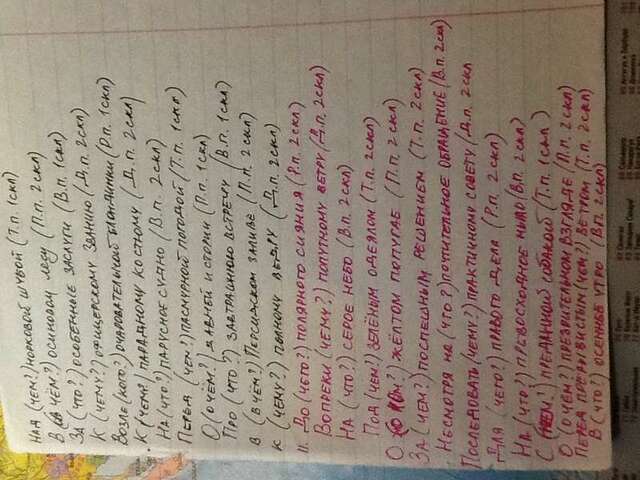 Над (чем?) норковой шубой (Т.п. 1скл)
В (чём?) осиновом лесу (П.п. 2скл)
За (что?) особенные заслуги (В.п. 1скл)
К (чему?) офицерскому званию (Д.п. 2скл)
Возле (кого?) очаровательной блондинки (Р.п. 1скл)
К (чему?) парадному костюму (Д.п. 2скл)
На (что?) парусное судно (В.п. 2скл)
Перед (чем?) пасмурной погодой (Т.п. 1скл)
О (о чём?) давней истории (П.п. 1скл)
Про (что?) завтрашнюю встречу (В.п. 1скл)
В (в чём?) Персидском заливе (П.п. 2скл)
К (чему?) полному ведру (Д.п. 2скл)
11. До (чего?) полярного сияния (Р.п. 2скл)
Вопреки (чему?) попутному ветру (Д.п. 2скл)
На (что?) серое небо (В.п. 2скл)
Под (чем?) зелёным одеялом (Т.п. 2скл)
О (ком?) жёлтом попугае (П.п. 2скл)
За (чем?) поспешным решением (Т.п. 2скл)
Несмотря на (что?) почтительное обращение (В.п. 2скл)
Последовать (чему?) практичному совету (Д.п. 2скл)
Для (чего?) правого дела (Р.п. 2скл)
На (что?) превосходное мыло (В.п. 2скл)
С (кем?) преданной собакой (Т.п. 1скл)
О (о чём?) презрительном взгляде (П.п. 2скл)
Перед прерывистым (чем?) ветром (Т.п. 2скл)
В (что?) осеннее утро (В.п. 2скл)